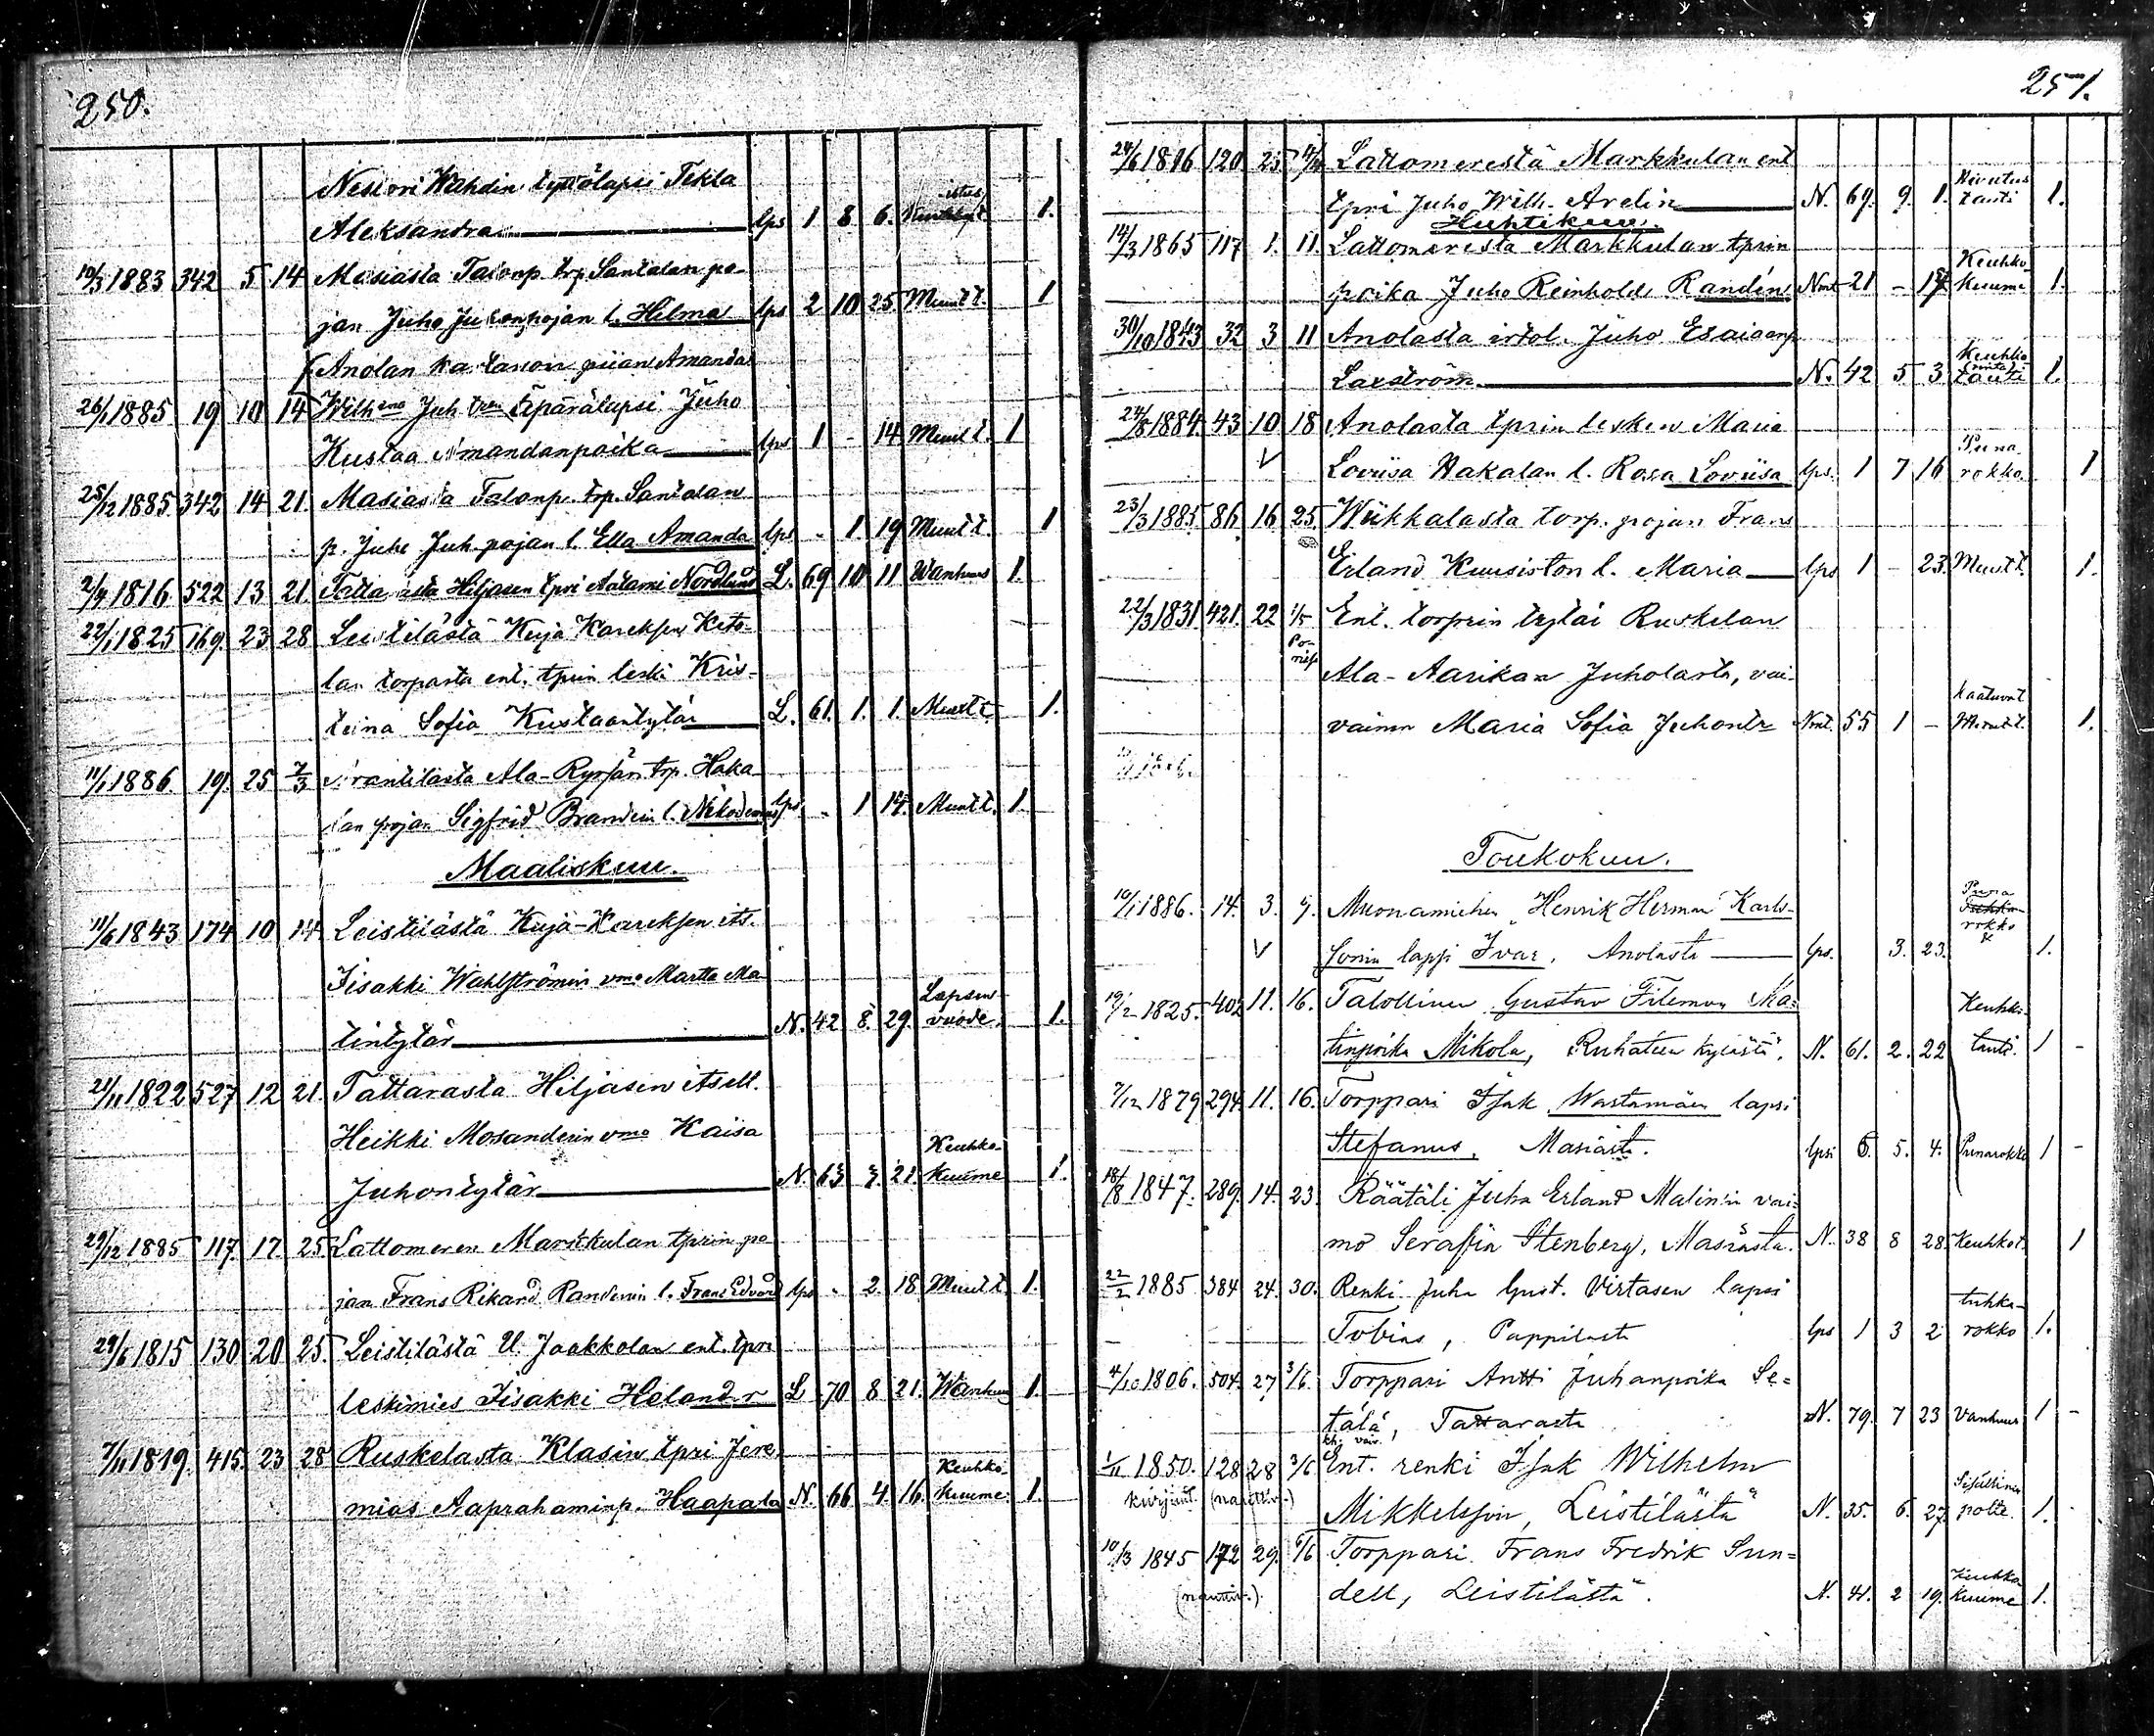 250.
Nestori Wahdin tyttölapsi Tekla
Aleksandra lps 1 8 6. 1.
10/3 1883 342 5 14 Masiasta Talonp. trp. Santalan po-
jan Juho Juhonpojan l. Helma lps 2 10 25 Muut t. 1
Anolan kartanon piian Amanda
26/1 1885 19 10 14 Wilhena Juh. tren äpärälapsi Juho
Kustaa Amandanpoika lps 1 - 14 Muut t. 1
25/12 1885. 342 14 21. Masiasta Talonp. trp. Santalan
p. Juho Juh. pojan l. Ella Amanda lps - 1. 19 Muut t. 1
2/4 1816. 522 13 21. Tattarasta Hiljasen tpri Aatami Nordlund L. 69 10 11 Wanhuus 1.
22/1 1825 169. 23 28 Leistilästä Kujä Kareksen Keto-
lan torpasta ent. tprin leski Kris-
tiina Sofia Kustaantytär L. 61. 1. 1. Muut t. 1.
11/1 1886. 19. 25 7/3 Ala-Ryssän trp. Haka-
lan pojan Sigfrid Brandein l. Nikodemus lps. - 1 14. Muut t. 1.
Maaliskuu.
11/6 1843 174 10 14 Leistilästä Kujä-Kareksen its.
Iisakki Wahlströmin vmo Martta Ma-
tintytär N. 42 8. 29. Lapsen-
vuode. 1.
21/11 1822 527 12 21. Tattarasta Hiljasen itsell.
Heikki Mosanderin vmo Kaisa
Juhontytär N. 63 3. 21. Keuhko-
kuume 1.
29/12 1885 117. 17. 25. Lattomeren Markkulan tprin po-
jan Frans Rikard Randenin l. Frans Edvard lps - 2. 18 Muut t. 1.
29/6 1815 130 20 25. Leistilästä U. Jaakkolan ent. tpri
leskimies Iisakki Helander L 70 8. 21. Wanhuus 1.
7/11 1819. 415. 23 28 Ruskelasta Klasin tpri Jere-
mias Aaprahaminp. Haapala N. 66 4. 16. Keuhko-
kuume. 1.
251.
24/6 1816 120 25 Lattomerestä Markkulan ent
tpri Juho Wilh. Avelin N. 69. 9. 1. tauti 1.
Huhtikuu.
14/3 1865 117 1. 11. Lattomerestä Markkulan tprin
poika Juho Reinhold Randén Nmt 21 - 17 Keuhko-
kuume 1.
30/10 1843 32 3 11 Anolasta irtol. Juho Esaianp.
Laxström N. 42 5 3 tauti 1.
24/8 1884. 43 10 18 Anolasta tprin lesken Maria
Loviisa Hakalan l. Rosa Loviisa lps. 1 7 16 Puna-
rokko 1
23/3 1885. 86 16 25. Wiikkalasta torp. pojan Frans
Erland Kuusiston l. Maria lps 1 - 23. Muut t. 1.
22/3 1831. 421. 22 1/5 Ent. torprin tytär Ruskelan
Ala-Aarikan Juholasta, vai-
vainen Maria Sofia Juhontr Nmt. 55 1 - kaatuvat
Muut t. 1.
Toukokuu.
10/1 1886. 14. 3. 9. Muonamiehen Henrik Herman Karls-
sonin lapsi Ivar, Anolasta lps. 3. 23. Puna
rokko 1.
19/2 1825. 402 11. 16. Talollinen Gustav Filemon Ma-
tinpoika Mikola, Ruhaten kylästä. N. 61. 2. 22 Keuhko-
tauti. 1 -
7/12 1879 294. 11. 16. Torppari Isak Wastamäen lapsi
Stefanus, Masiasta. lpsi 6. 5. 4. Punarokko 1 -
18/8 1847. 289. 14. 23. Räätäli Juha Erland Malinin vai-
mo Serafia Stenberg, Masiasta. N. 38 8 28. Keuhkot. 1
22/2 1885 384 24. 30. Renki Juha Gust. Virtasen lapsi
Tobias, Pappilasta lps 1 3 2 tuhka-
rokko 1.
4/10 1806. 504. 27 3/6. Torppari Antti Juhanpoika Se-
tälä, Tattarasta N. 79. 7 23 Vanhuus 1 -
1/11 1850. 128 28 3/6 Ent. renki Isak Wilhelm
Mikkelsson, Leistilästä N. 35. 6. 27. 1.
10/3 1845 172 29. 6/6 Torppari Frans Fredrik Sun-
dell, Leistilästä. N. 41. 2 19. Keuhko-
kuume 1.